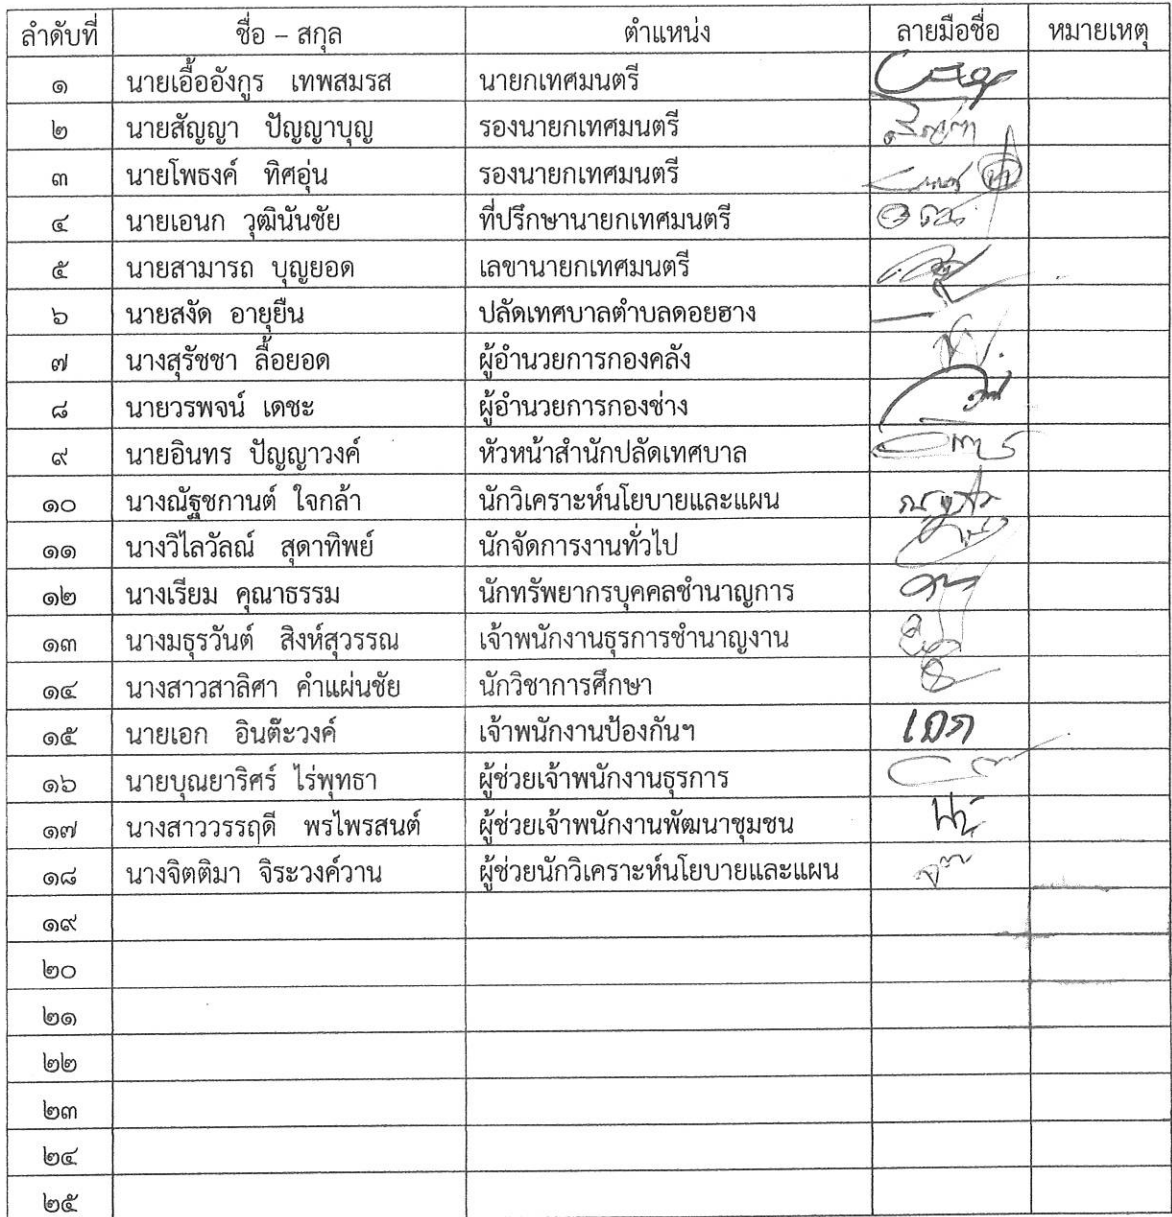 ลำดับที่ ชื่อ – สกุล ตำแหน่ง ลายมือชื่อ หมายเหตุ
๑ นายเอื้ออังกูร เทพสมรส นายกเทศมนตรี
๒ นายสัญญา ปัญญาบุญ รองนายกเทศมนตรี
๓ นายโพธงค์ ทิศอุ่น รองนายกเทศมนตรี
๔ นายเอนก วุฒินันชัย ที่ปรึกษานายกเทศมนตรี
๕ นายสามารถ บุญยอด เลขานายกเทศมนตรี
๖ นายสงัด อายุยืน ปลัดเทศบาลตำบลดอยฮาง
๗ นางสุรัชชา ลื้อยอด ผู้อำนวยการกองคลัง
๘ นายวรพจน์ เดชะ ผู้อำนวยการกองช่าง
๙ นายอินทร ปัญญาวงค์ หัวหน้าสำนักปลัดเทศบาล
๑๐ นางณัฐชกานต์ ใจกล้า นักวิเคราะห์นโยบายและแผน
๑๑ นางวิไลวัลณ์ สุดาทิพย์ นักจัดการงานทั่วไป
๑๒ นางเรียม คุณาธรรม นักทรัพยากรบุคคลชำนาญการ
๑๓ นางมธุรวันต์ สิงห์สุวรรณ เจ้าพนักงานธุรการชำนาญงาน
๑๔ นางสาวสาลิศา คำแผ่นชัย นักวิชาการศึกษา
๑๕ นายเอก อินต๊ะวงค์ เจ้าพนักงานป้องกันฯ เอก
๑๖ นายบุณยาริศร์ ไร่พุทธา ผู้ช่วยเจ้าพนักงานธุรการ
๑๗ นางสาววรรฤดี พรไพรสนต์ ผู้ช่วยเจ้าพนักงานพัฒนาชุมชน
๑๘ นางจิตติมา จิระวงค์วาน ผู้ช่วยนักวิเคราะห์นโยบายและแผน
๑๙
๒๐
๒๑
๒๒
๒๓
๒๔
๒๕